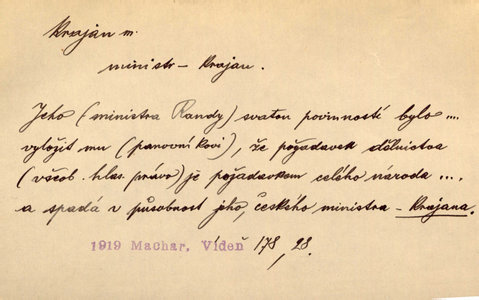 Krajan m.
ministr – krajan.
Jeho (ministra Randy) svatou povinností bylo ....
vyložit mu (panovníkovi), že požadavek dělnictva
(všeob. hlas. právo) je požadavkem celého národa ....
a spadá v působnost jeho, českého ministra – krajana.
1919 Machar, Vídeň 178, 28.